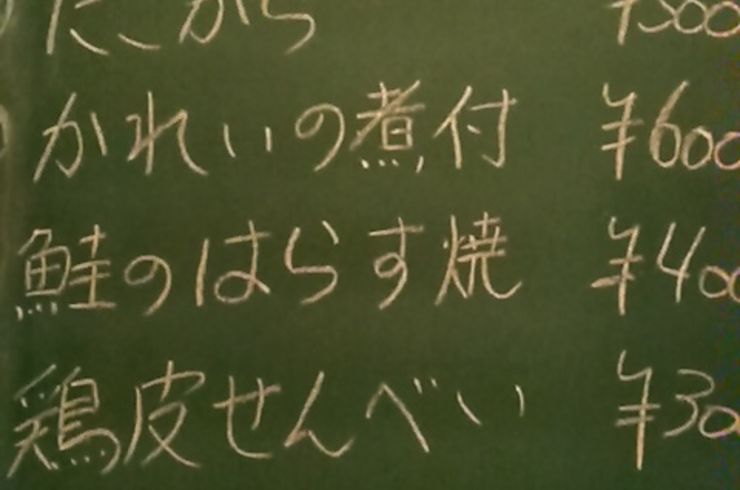 たこから ¥500
かれいの煮付 ¥600
鮭のはらす焼 ¥400
鶏皮せんべい ¥300